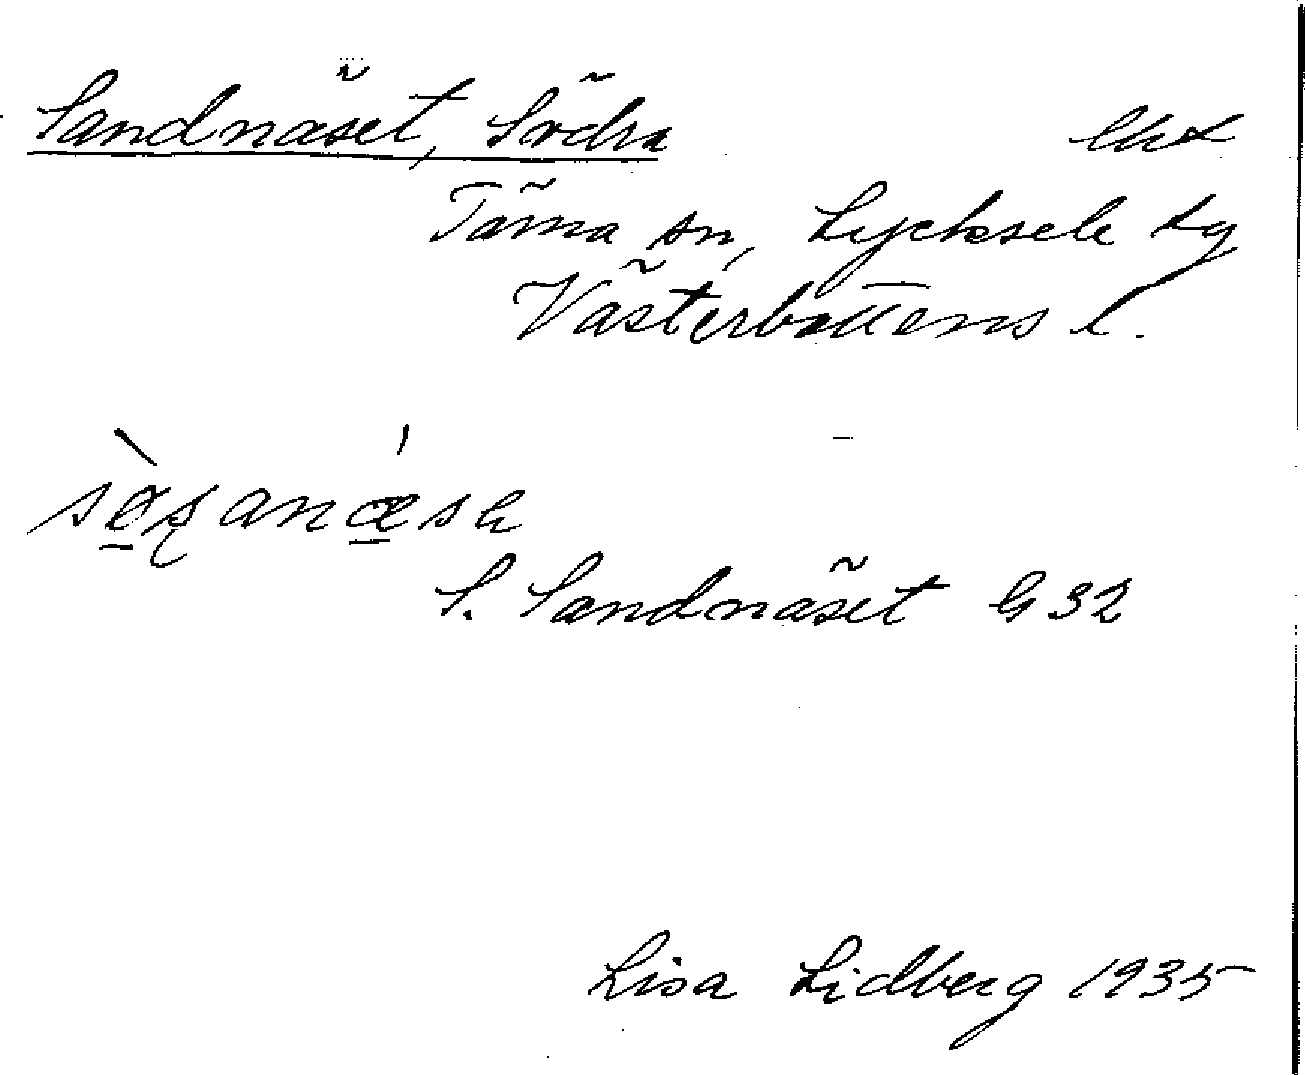 Sandnäset, Södra
Tärna sn, Lycksele lg
Västerbottens l.
S. Sandnäset G 32
Lisa Lidberg 1935